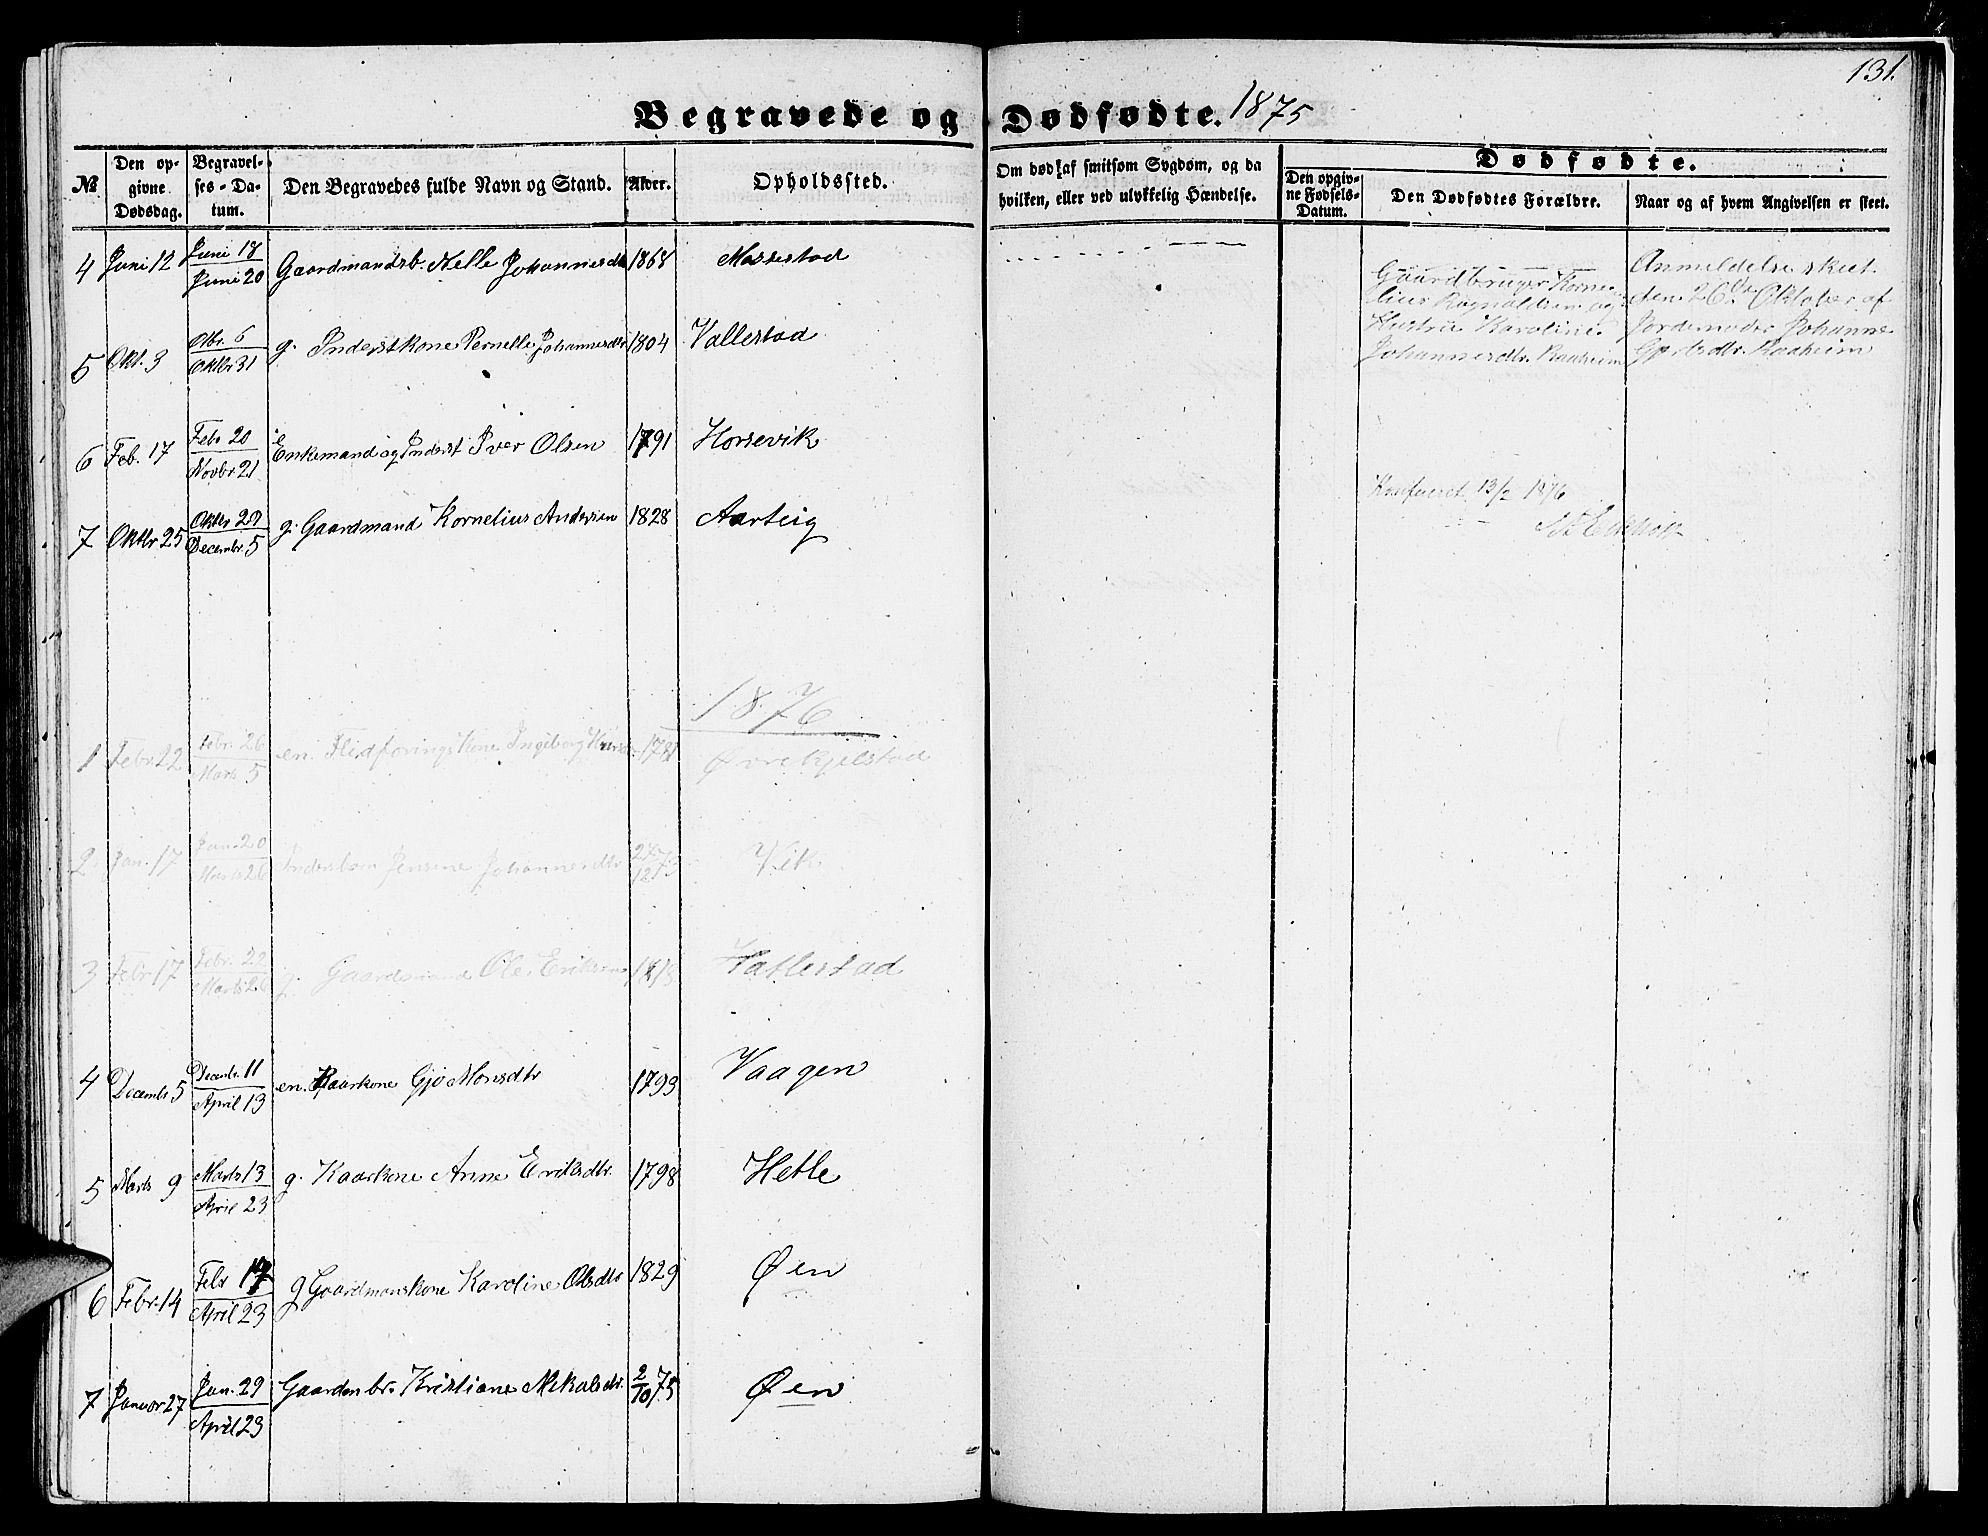 131.
Begravede og Dødfødte. 1875
№
Den op-
givne
Dødsdag.
Begravel-
ses-Da-
tum.
Den Begravedes fulde Navn og Stand.
Alder.
Opholdssted.
Om død af smitsom Sygdom, og da
hvilken, eller ved ulykkelig Hændelse.
Dødfødte.
Den opgiv-
ne Fødsels-
Datum.
Den Dødfødtes Forældre.
Naar og af hvem Angivelsen er skeet.
4 Juni 12 Juni 18 / Juni 20 Gaardmandsb. Nelle Johannesdtr 1868 Massestad
Gaardbruger Korne-
lius Ragnaldsen og
Hustru Karoline
Johannesdtr. Raaheim
Anmeldelse skeet
den 26de Oktober af
Jordemoder Johanne
Raaheim
5 Okt. 3 Obr. 6 / Oktbr 31 g. Inderstkone Pernelle Johannesdtr 1804 Vallestad
6 Feb. 17 Febr 20 / Novbr 21 Enkemand og Inderst Iver Olsen 1791 Horsevik
Konfereret 13/2 1876
7 Oktbr 25 Oktbr 29 / Decembr. 5 g. Gaardmand Kornelius Andersen 1828 Aarteig
1876
1 Febr 22 Febr. 26 / Marts 5 en. Flidførings Kone Ingeborg 1781 Øvrekjelstad
2 Jan. 17 Jan. 20 / Marts 26 Inderstbarn Jensine Johannesdtr Vik
3 Febr 17 Febr. 22 / Marts 26 g. Gaardmand Ole Eriksen 1813 Vallestad
4 Decembr 5 Decembr. 11 / April 13 en. Kaarkone Gjø Monsdtr 1793 Vaagen
5 Marts 9 Marts 13 / April 23 g. Kaarkone Anne Eriksdtr. 1798 Hetle
6 Febr. 14 Febr 17 / April 23 g Gaardmanskone Karoline Olsdtr 1829 Øen
7 Januar 27 Jan. 29 / April 23 Gaardmbr. Kristiane Mikalsdtr. 2/10 75 Øen